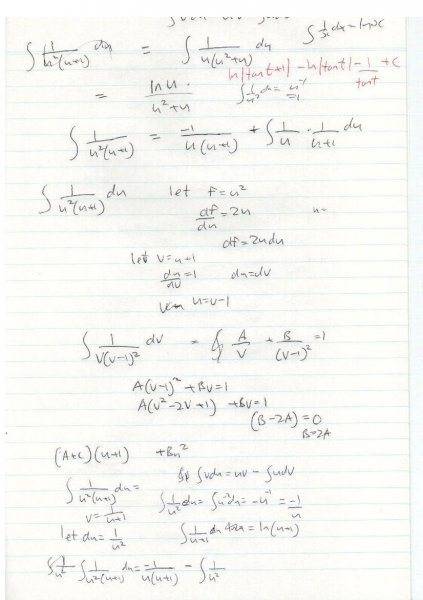 ∫ 1/x dx = ln x + C
∫ 1/(u²(u+1)) du = ∫ 1/(u(u²+u)) du
ln|tant+1| - ln|tant| - 1/tant + C
= ln u . / u²+u
∫ 1/u² du = u⁻¹/-1
∫ 1/(u²(u+1)) = -1/(u(u+1)) + ∫ 1/u · 1/(u+1) du
∫ 1/(u²(u+1)) du let f=u²
df/du = 2u u=
df = 2udu
let v=u+1
du/dv = 1 du=dv
u=v-1
∫ 1/(v(v-1)²) dv = ∫ A/v + B/(v-1)² = 1
A(v-1)² + Bv=1
A(v²-2v+1) + Bv=1
(B-2A)=0
B=2A
(A+C)(u+1) + Bu²
∫ 1/(u²(u+1)) du = ∫vdu = uv - ∫udv
v = 1/(u+1) ∫ 1/u² du = ∫u⁻²du = -u⁻¹ = -1/u
let du = 1/u² ∫ 1/(u+1) = ln(u+1)
∫ 1/(u²(u+1)) du = -1/(u(u+1)) - ∫ 1/u²